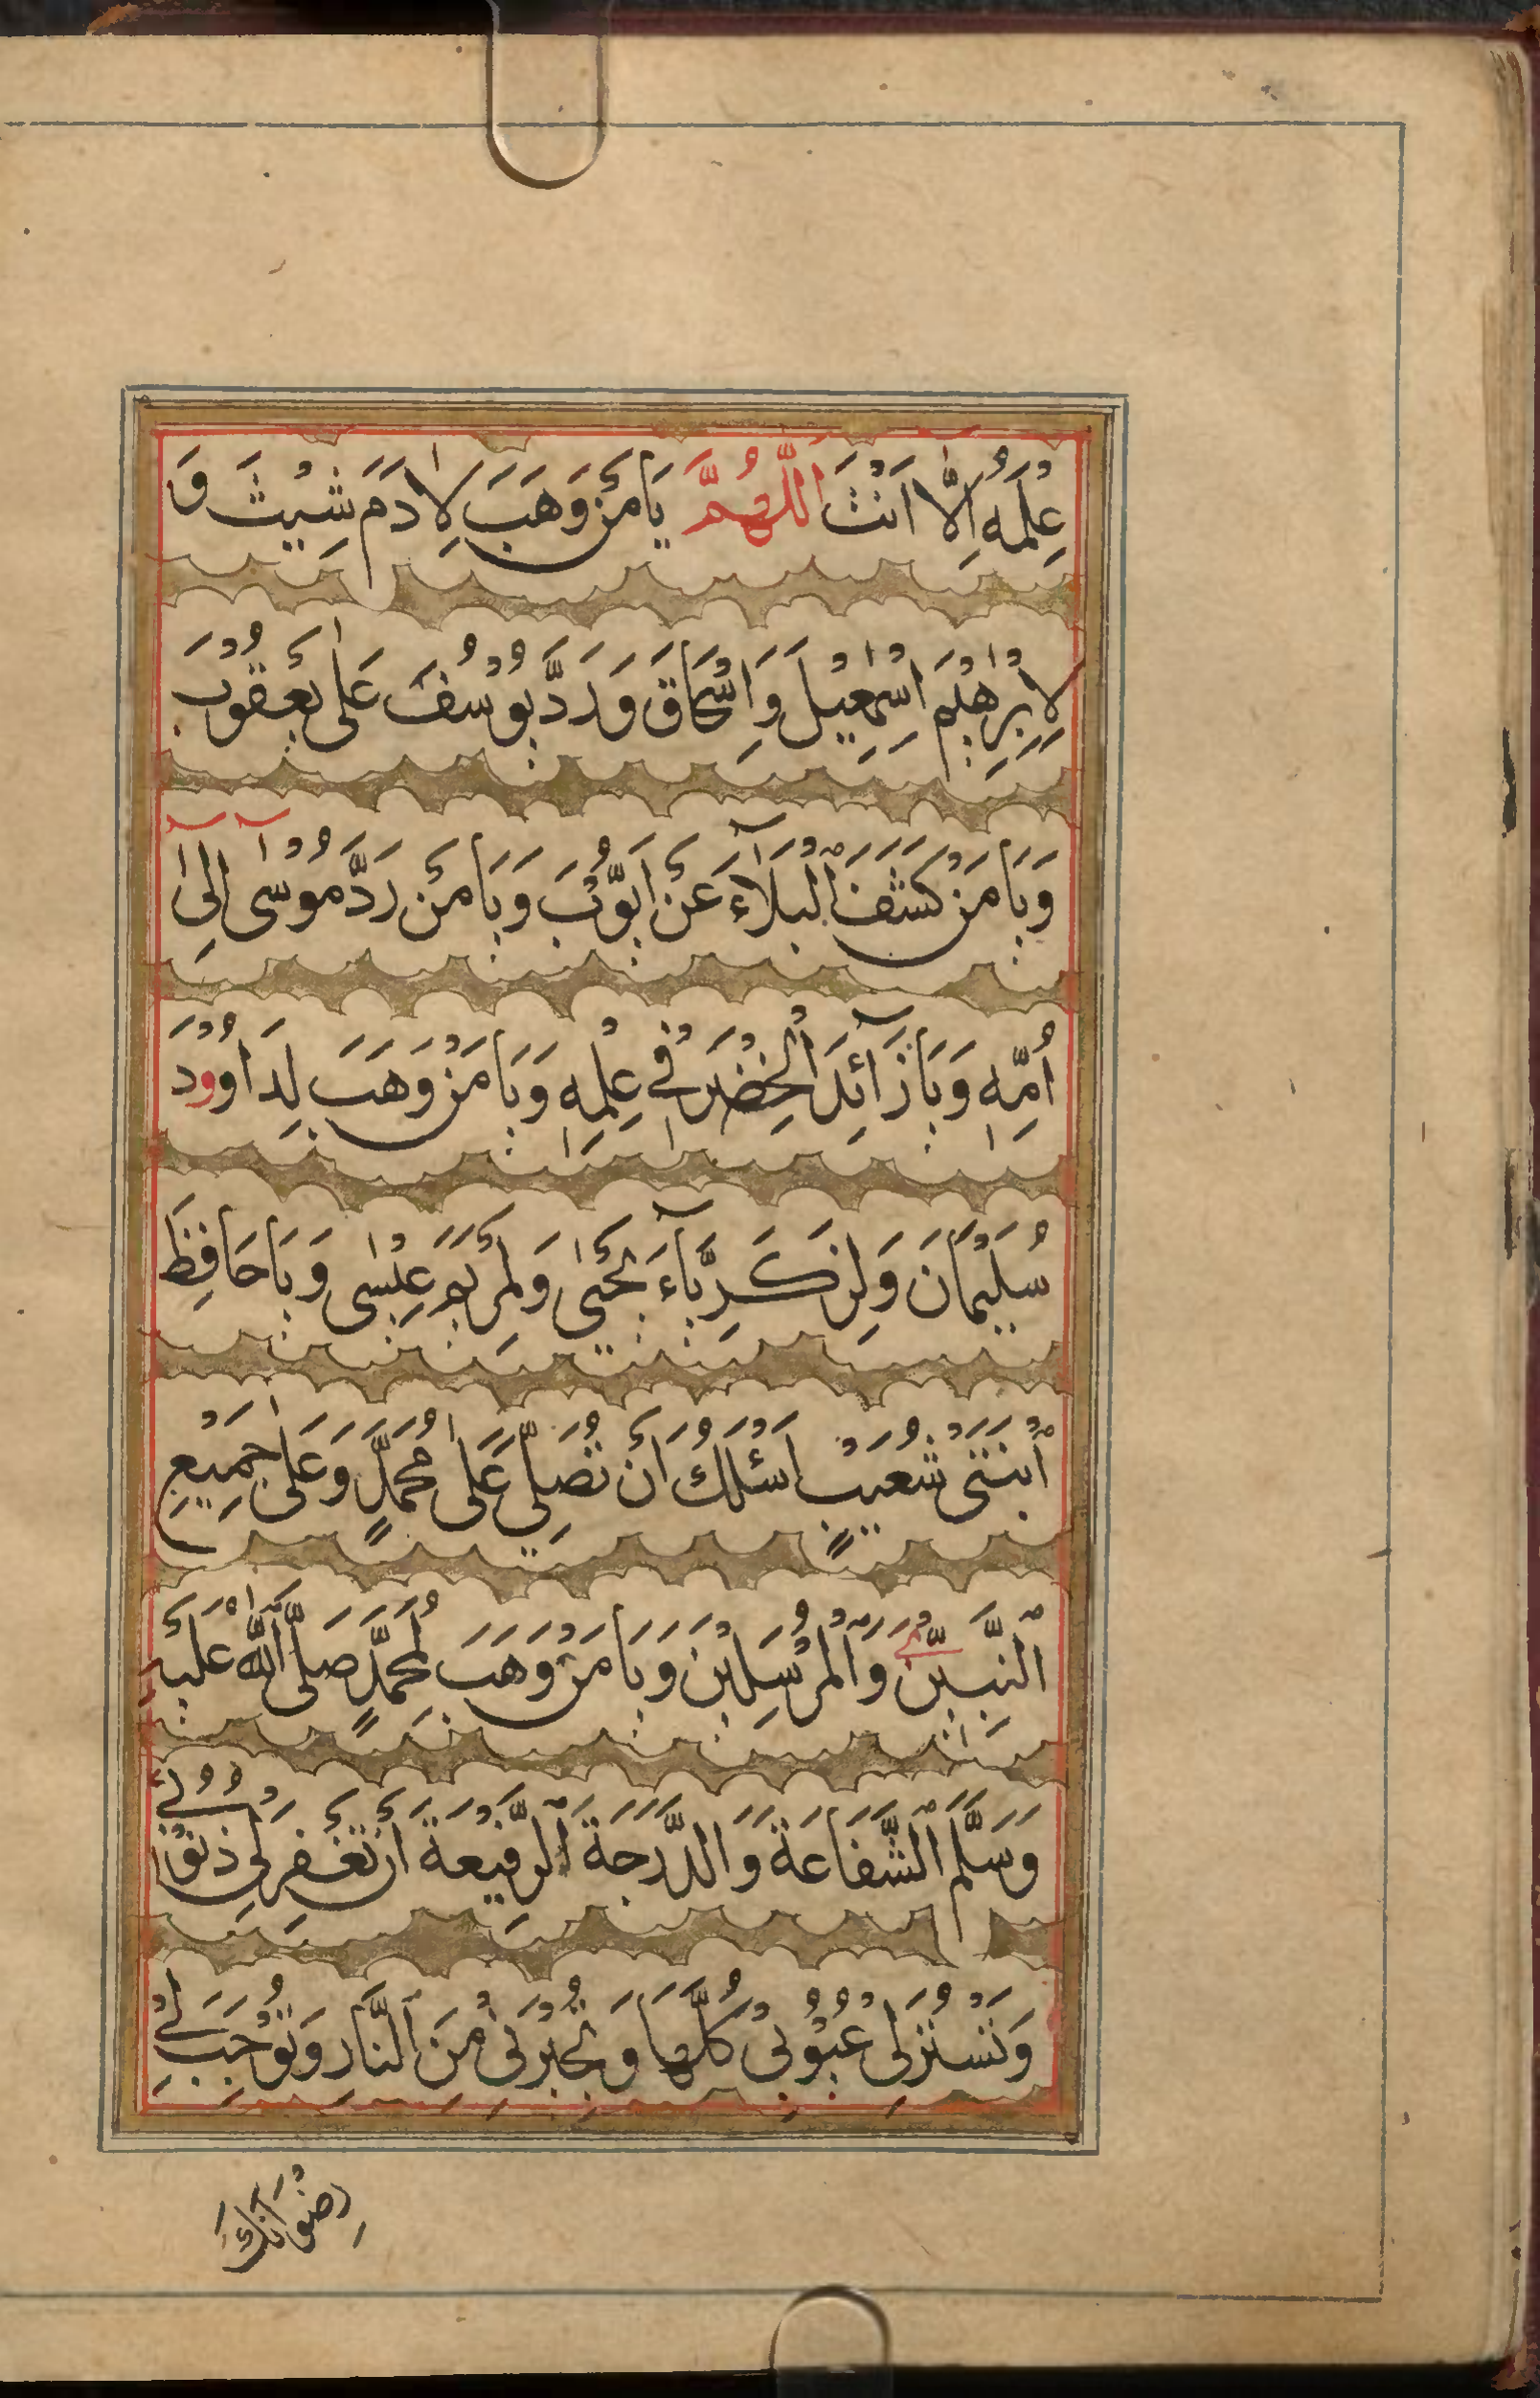 عِلْمَهُ اِلَّا اَنْتَ اَللّٰهُمَّ يَا مَنْ وَهَبَ لِاٰدَمَ شِيْثَ وَ
لِاِبْرٰهٖيْمَ اِسْمٰعِيْلَ وَاِسْحَاقَ وَرَدَّ يُوْسُفَ عَلٰى يَعْقُوْبَ
وَيَا مَنْ كَشَفَ الْبَلَآءَ عَنْ اَيُّوْبَ وَيَا مَنْ رَدَّ مُوْسٰٓى اِلٰٓى
اُمِّهٖ وَيَا زَآئِدَ الْخِضْرِ فِيْ عِلْمِهٖ وَيَا مَنْ وَهَبَ لِدَاوُوْدَ
سُلَيْمَانَ وَلِزَكَرِيَّآءَ يَحْيٰى وَلِمَرْيَمَ عِيْسٰى وَيَا حَافِظَ
ابْنَتَىْ شُعَيْبٍ اَسْئَلُكَ اَنْ تُصَلِّيَ عَلٰى مُحَمَّدٍ وَعَلٰى جَمِيْعِ
النَّبِيّٖنَ وَالْمُرْسَلِيْنَ وَيَا مَنْ وَهَبَ لِمُحَمَّدٍ صَلَّى اللّٰهُ عَلَيْهِ
وَسَلَّمَ الشَّفَاعَةَ وَالدَّرَجَةَ الرَّفِيْعَةَ اَنْ تَغْفِرَ لِيْ ذُنُوْبِيْ
وَتَسْتُرَ لِيْ عُيُوْبِيْ كُلَّهَا وَتُجِيْرَنِيْ مِنَ النَّارِ وَتُوْجِبَ لِيْ
رِضْوَانَكَ